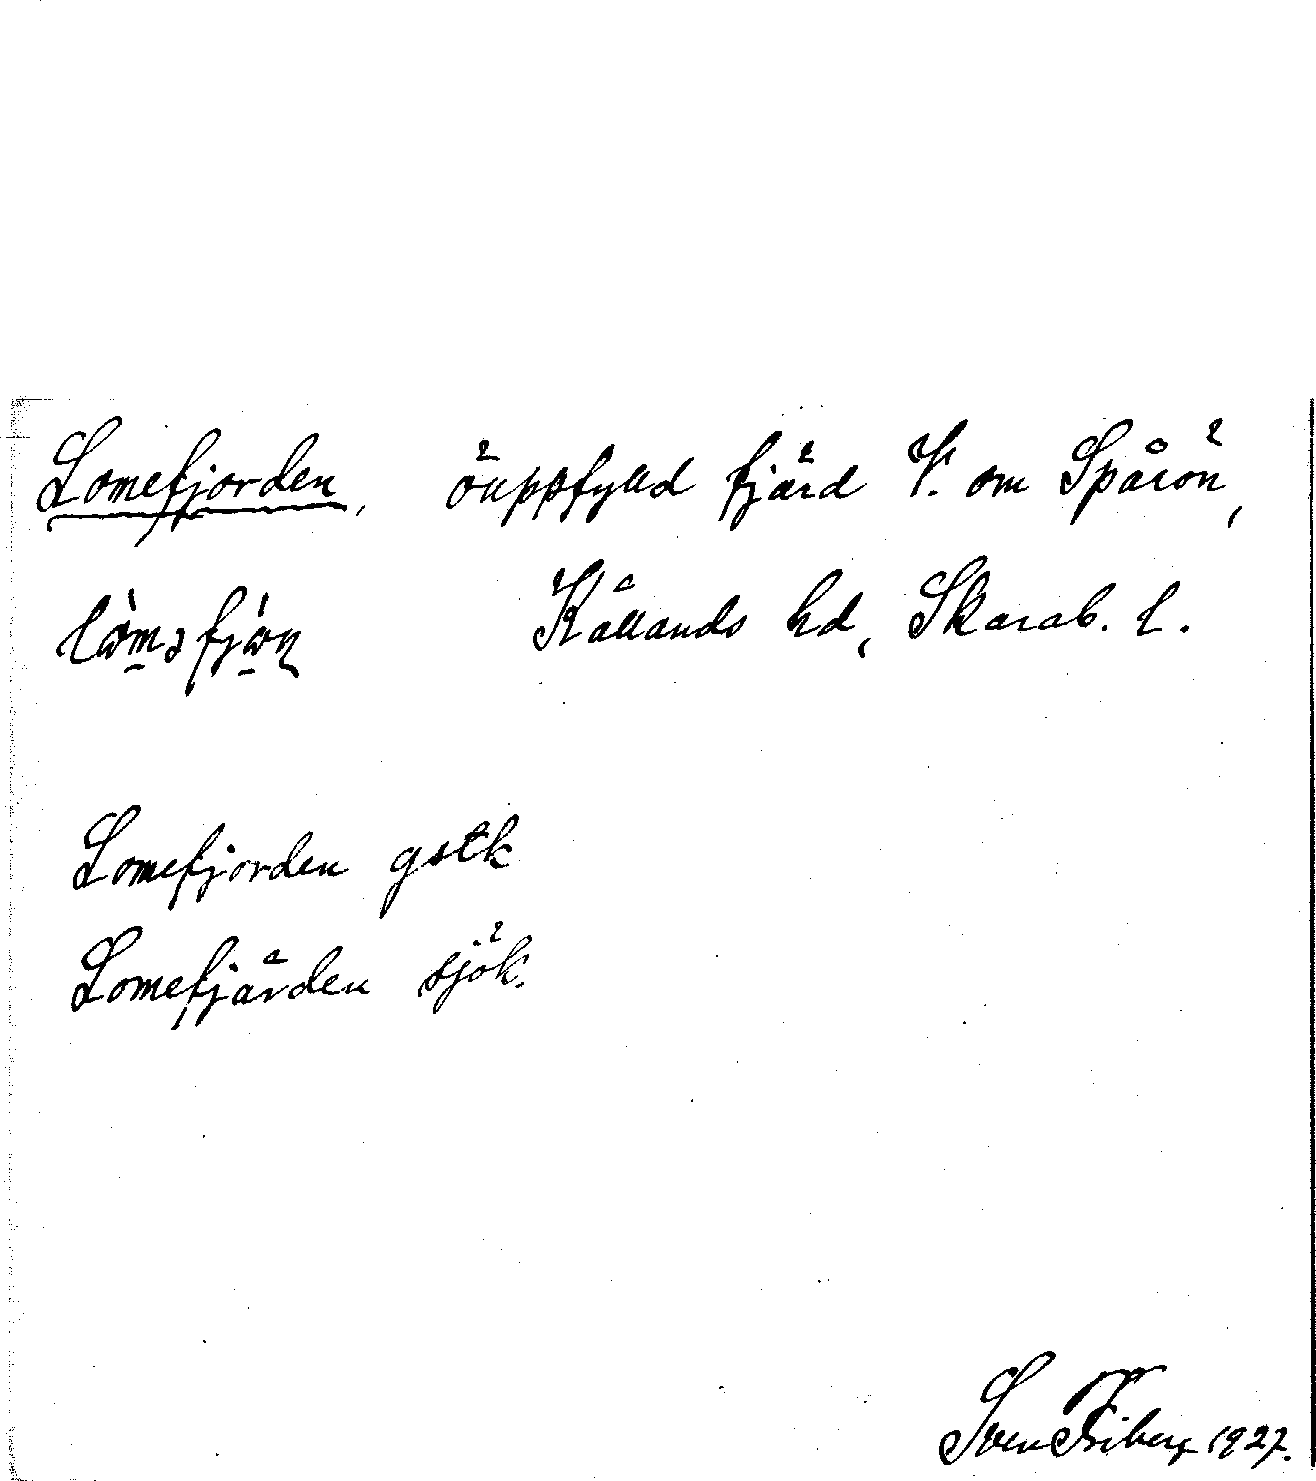 Lomefjorden, önppsfylld fjärd V. om Spårön,
Kållands hd, Skarab. l.
Lomefjorden gstk
Lomefjärden sjök.
Sven Friberg 1927.